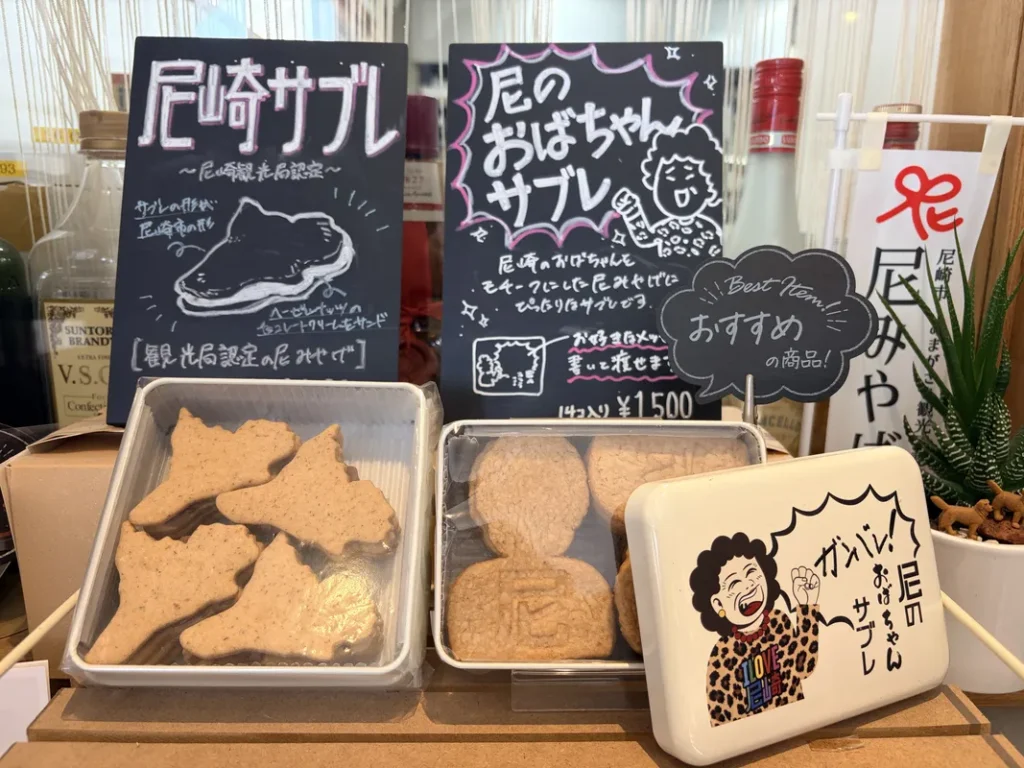 尼崎サブレ
～尼崎観光局認定～
サブレの形が
尼崎市の形
ヘーゼルナッツの
チョコレートクリームをサンド
[観光局認定の尼みやげ]
尼の
おばちゃん
サブレ
尼崎のおばちゃんを
モチーフにした尼みやげに
ぴったりなサブレです
お好きなメッ
書いて渡せま
14コ入り ¥1,500
Best Item!
おすすめ
の商品!
尼みやげ
尼崎市
観光
SUNTOR
BRANDY
V.S.O
93
ガンバレ!
尼の
おばちゃん
サブレ
I LOVE
尼崎